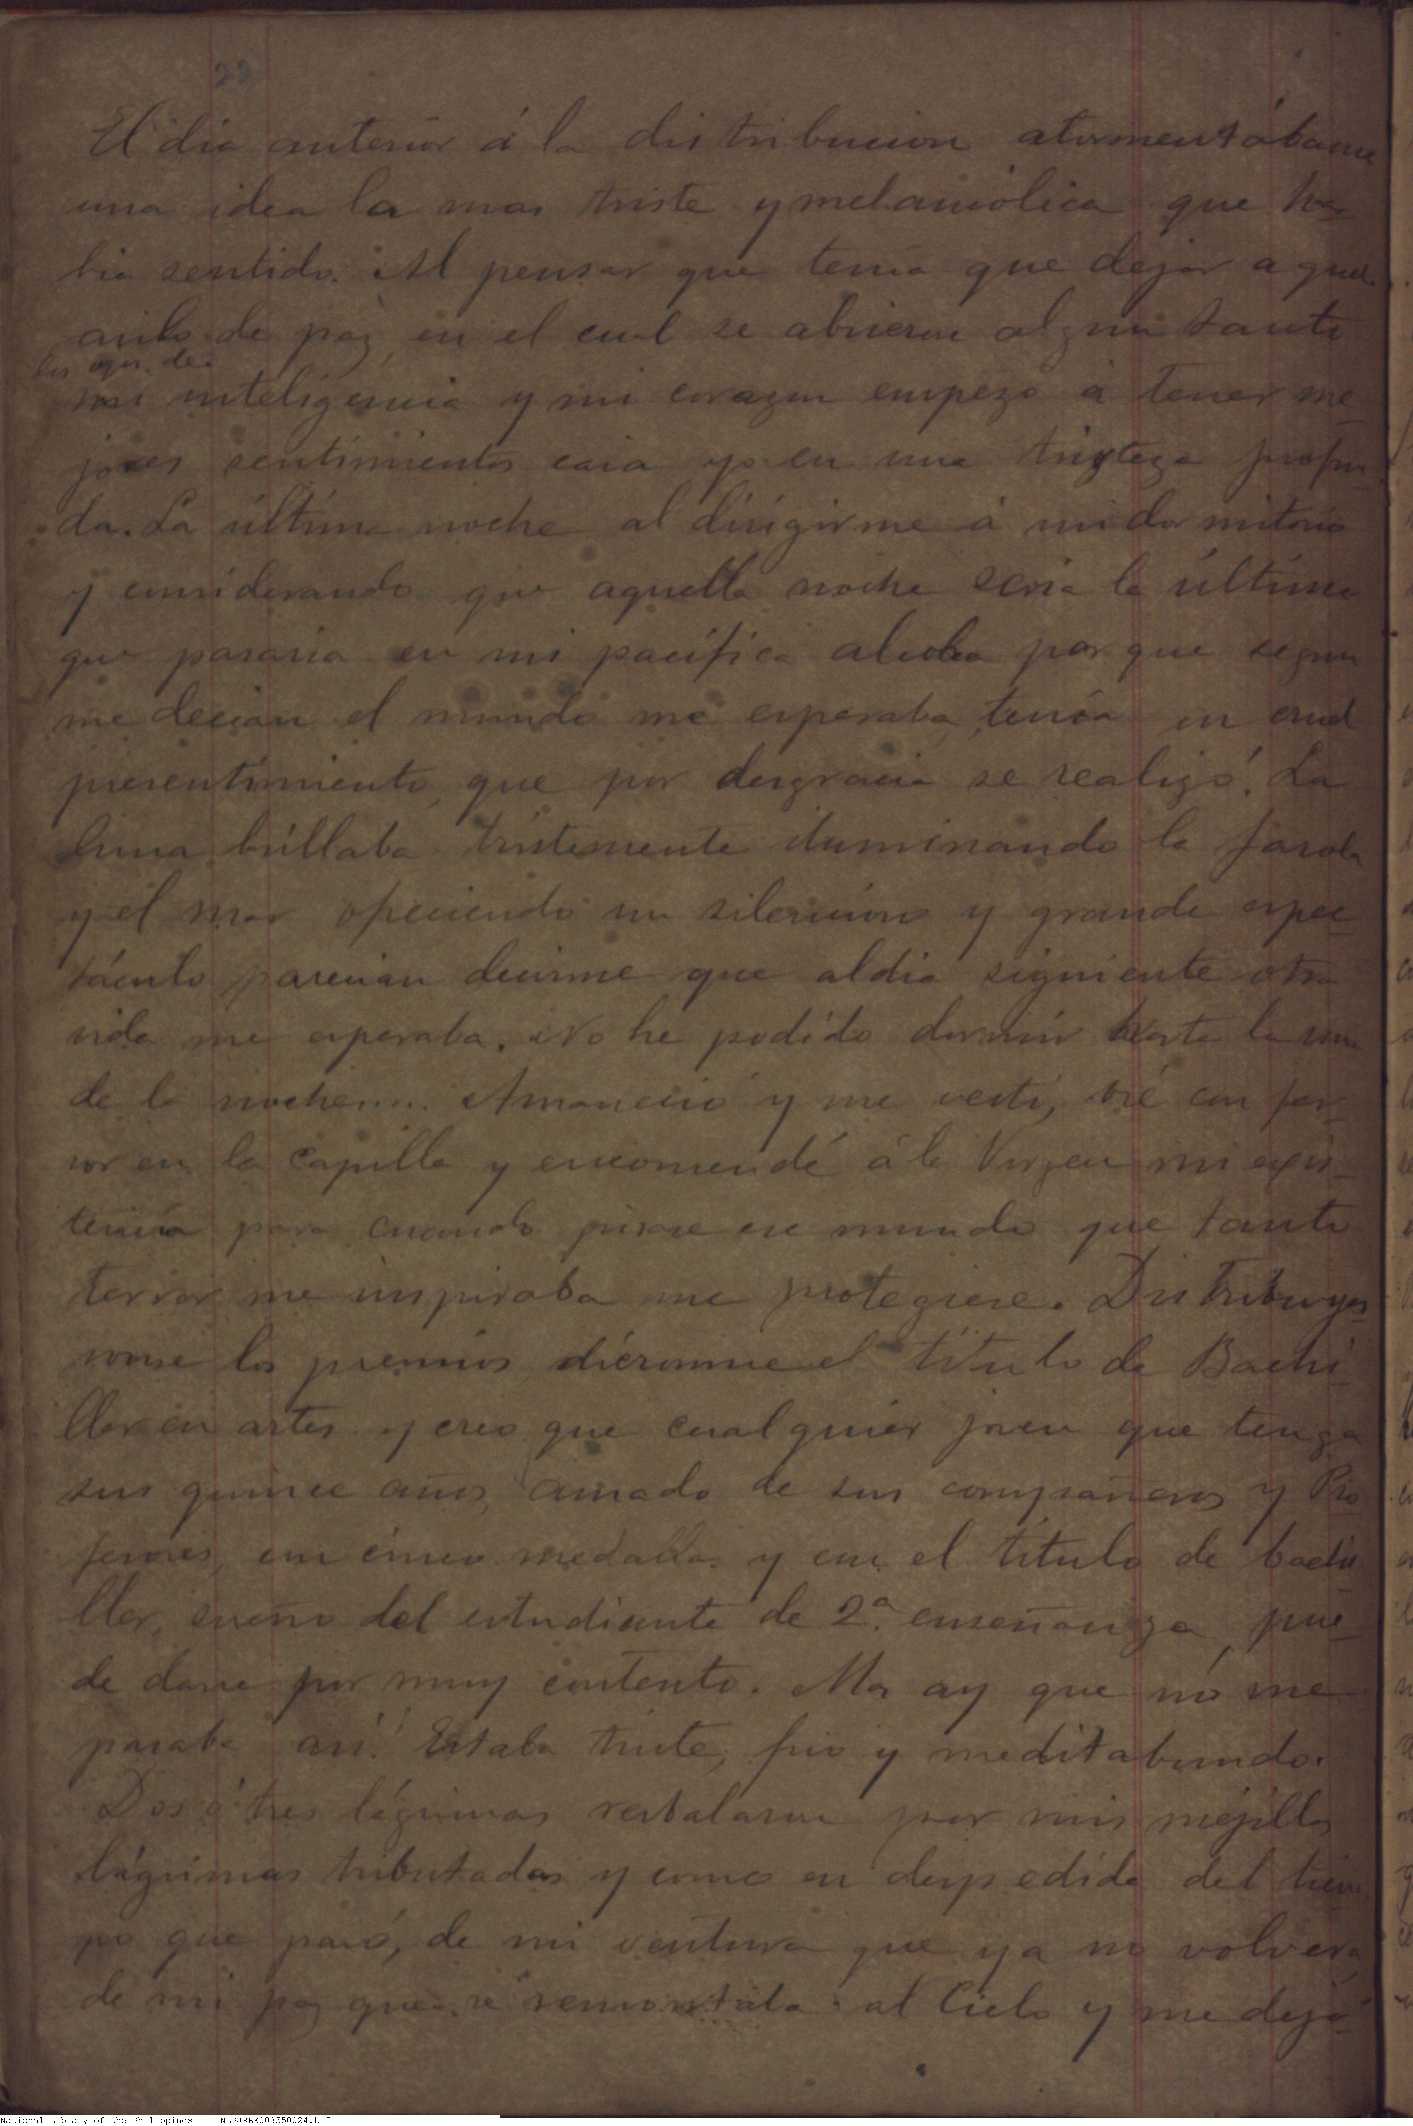 22
El dia anterior á la distribucion atormentábame
una idea la mas triste y melancólica que ha-
bia sentido. Al pensar que tenia que dejar aquel
asilo de paz en el cual se abrieron algun tanto
los ojos de
mi inteligencia y mi corazon empezó á tener me-
jores sentimientos caia yo en una tristeza profun-
da. La última noche al dirigirme á mi dormitorio
y considerando que aquella noche seria la última
que pasaria en mi pacífica alcoba por que segun
me decian el mundo me esperaba, tenia un cruel
presentimiento, que por desgracia se realizó. La
luna brillaba tristemente iluminando la farola
y el mar ofreciendo un silencioso y grande espec-
táculo parecian decirme que al dia siguiente otra
vida me esperaba. No he podido dormir hasta la una
de la noche..... Amaneció y me vestí, oré con fer-
vor en la Capilla y encomendé á la Virgen mi exis-
tencia para cuando pisase ese mundo que tanto
terror me inspiraba me protegiese. Distribuye-
ronse los premios, diéronme el título de Bachi-
ller en artes y creo que cualquier joven que tenga
sus quince años, amado de sus compañeros y Pro
fesores, con cinco medallas y con el título de bachi
ller, sueño del estudiante de 2.ª enseñanza, pue-
de darse por muy contento. Mas ay que no me
pasaba así! Estaba triste, frio y meditabundo.
Dos ó tres lágrimas resbalaron por mis mejillas
lágrimas tributadas y como en despedida del tiem
po que pasó, de mi ventura que ya no volverá
de mi paz que se remontaba al Cielo y me dejó
National Library of the Philippines